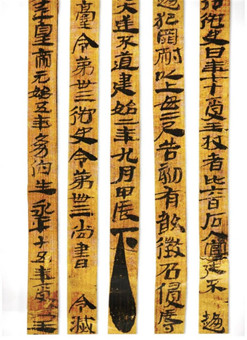 御史曰年七十受王杖者比六百石入宮廷不趨
犯罪耐以上毋二尺告劾有敢徵召侵辱
大逆不道建始二年九月甲辰下
臺令第卅三御史令第卌三尚書令滅
平皇帝元始五年幼伯生永平十五年受王